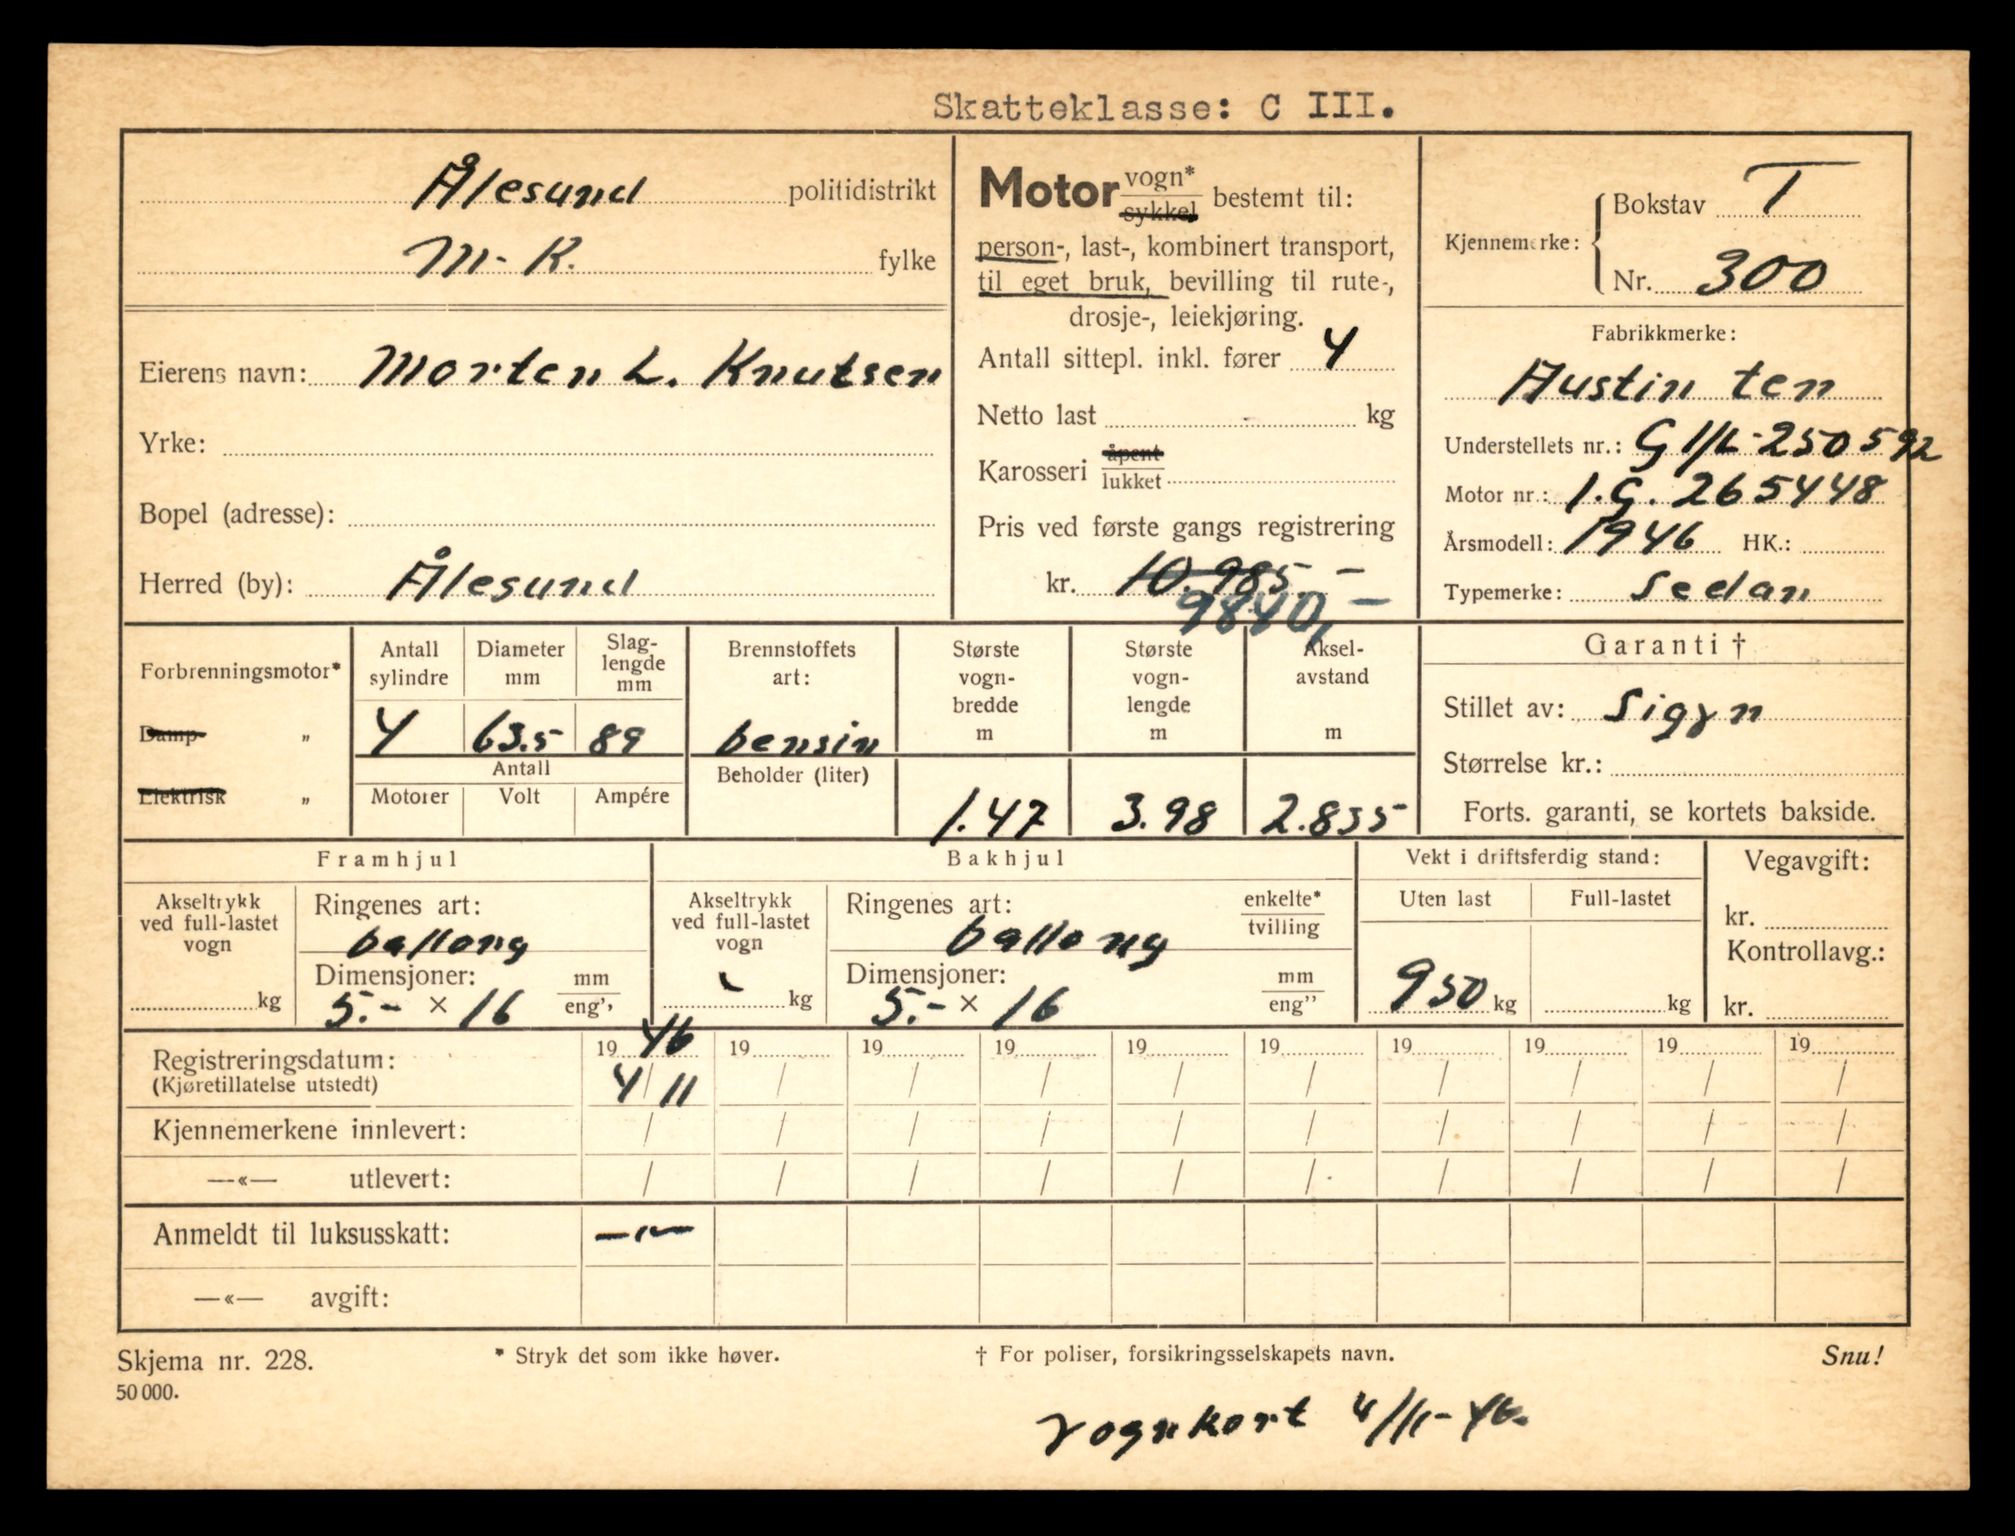 Skatteklasse: C III.
Ålesund politidistrikt
M-R. fylke
Eierens navn: Morten L. Knutsen
Yrke:
Bopel (adresse):
Herred (by): Ålesund
Motor vogn* / sykkel bestemt til:
person-, last-, kombinert transport,
til eget bruk, bevilling til rute-,
drosje-, leiekjøring.
Antall sittepl. inkl. fører 4
Netto last - kg
Karosseri åpent / lukket
Pris ved første gangs registrering
kr. 10.985.-
9840,-
Kjennemerke: Bokstav T
Nr. 300
Fabrikkmerke:
Austin ten
Understellets nr.: G 1/L-250592
Motor nr.: 1.G. 265448
Årsmodell: 1946 HK.:
Typemerke: Sedan
Forbrenningsmotor*
Damp- „
Elektrisk „
Antall sylindre
4
Diameter mm
63.5
Slaglengde mm
89
Antall
Motorer Volt Ampére
Brennstoffets art:
bensin
Beholder (liter)
Største vognbredde m
1.47
Største vognlengde m
3.98
Akselavstand m
2.835
Garanti †
Stillet av: Sigyn
Størrelse kr.:
Forts. garanti, se kortets bakside.
Framhjul
Akseltrykk ved full-lastet vogn
kg
Ringenes art:
ballong
Dimensjoner: mm / eng''
5.- × 16
Bakhjul
Akseltrykk ved full-lastet vogn
kg
Ringenes art: enkelte* / tvilling
ballong
Dimensjoner: mm / eng''
5.- × 16
Vekt i driftsferdig stand:
Uten last Full-lastet
950 kg kg
Vegavgift:
kr.
Kontrollavg.:
kr.
Registreringsdatum: 1946 19 19 19 19 19 19 19 19 19
(Kjøretillatelse utstedt) 4/11 / / / / / / / / /
Kjennemerkene innlevert: / / / / / / / / / /
—«— utlevert: / / / / / / / / / /
Anmeldt til luksusskatt: —"—
—«— avgift:
Skjema nr. 228.
50 000.
* Stryk det som ikke høver.
† For poliser, forsikringsselskapets navn.
Snu!
Vognkort 4/11-46.